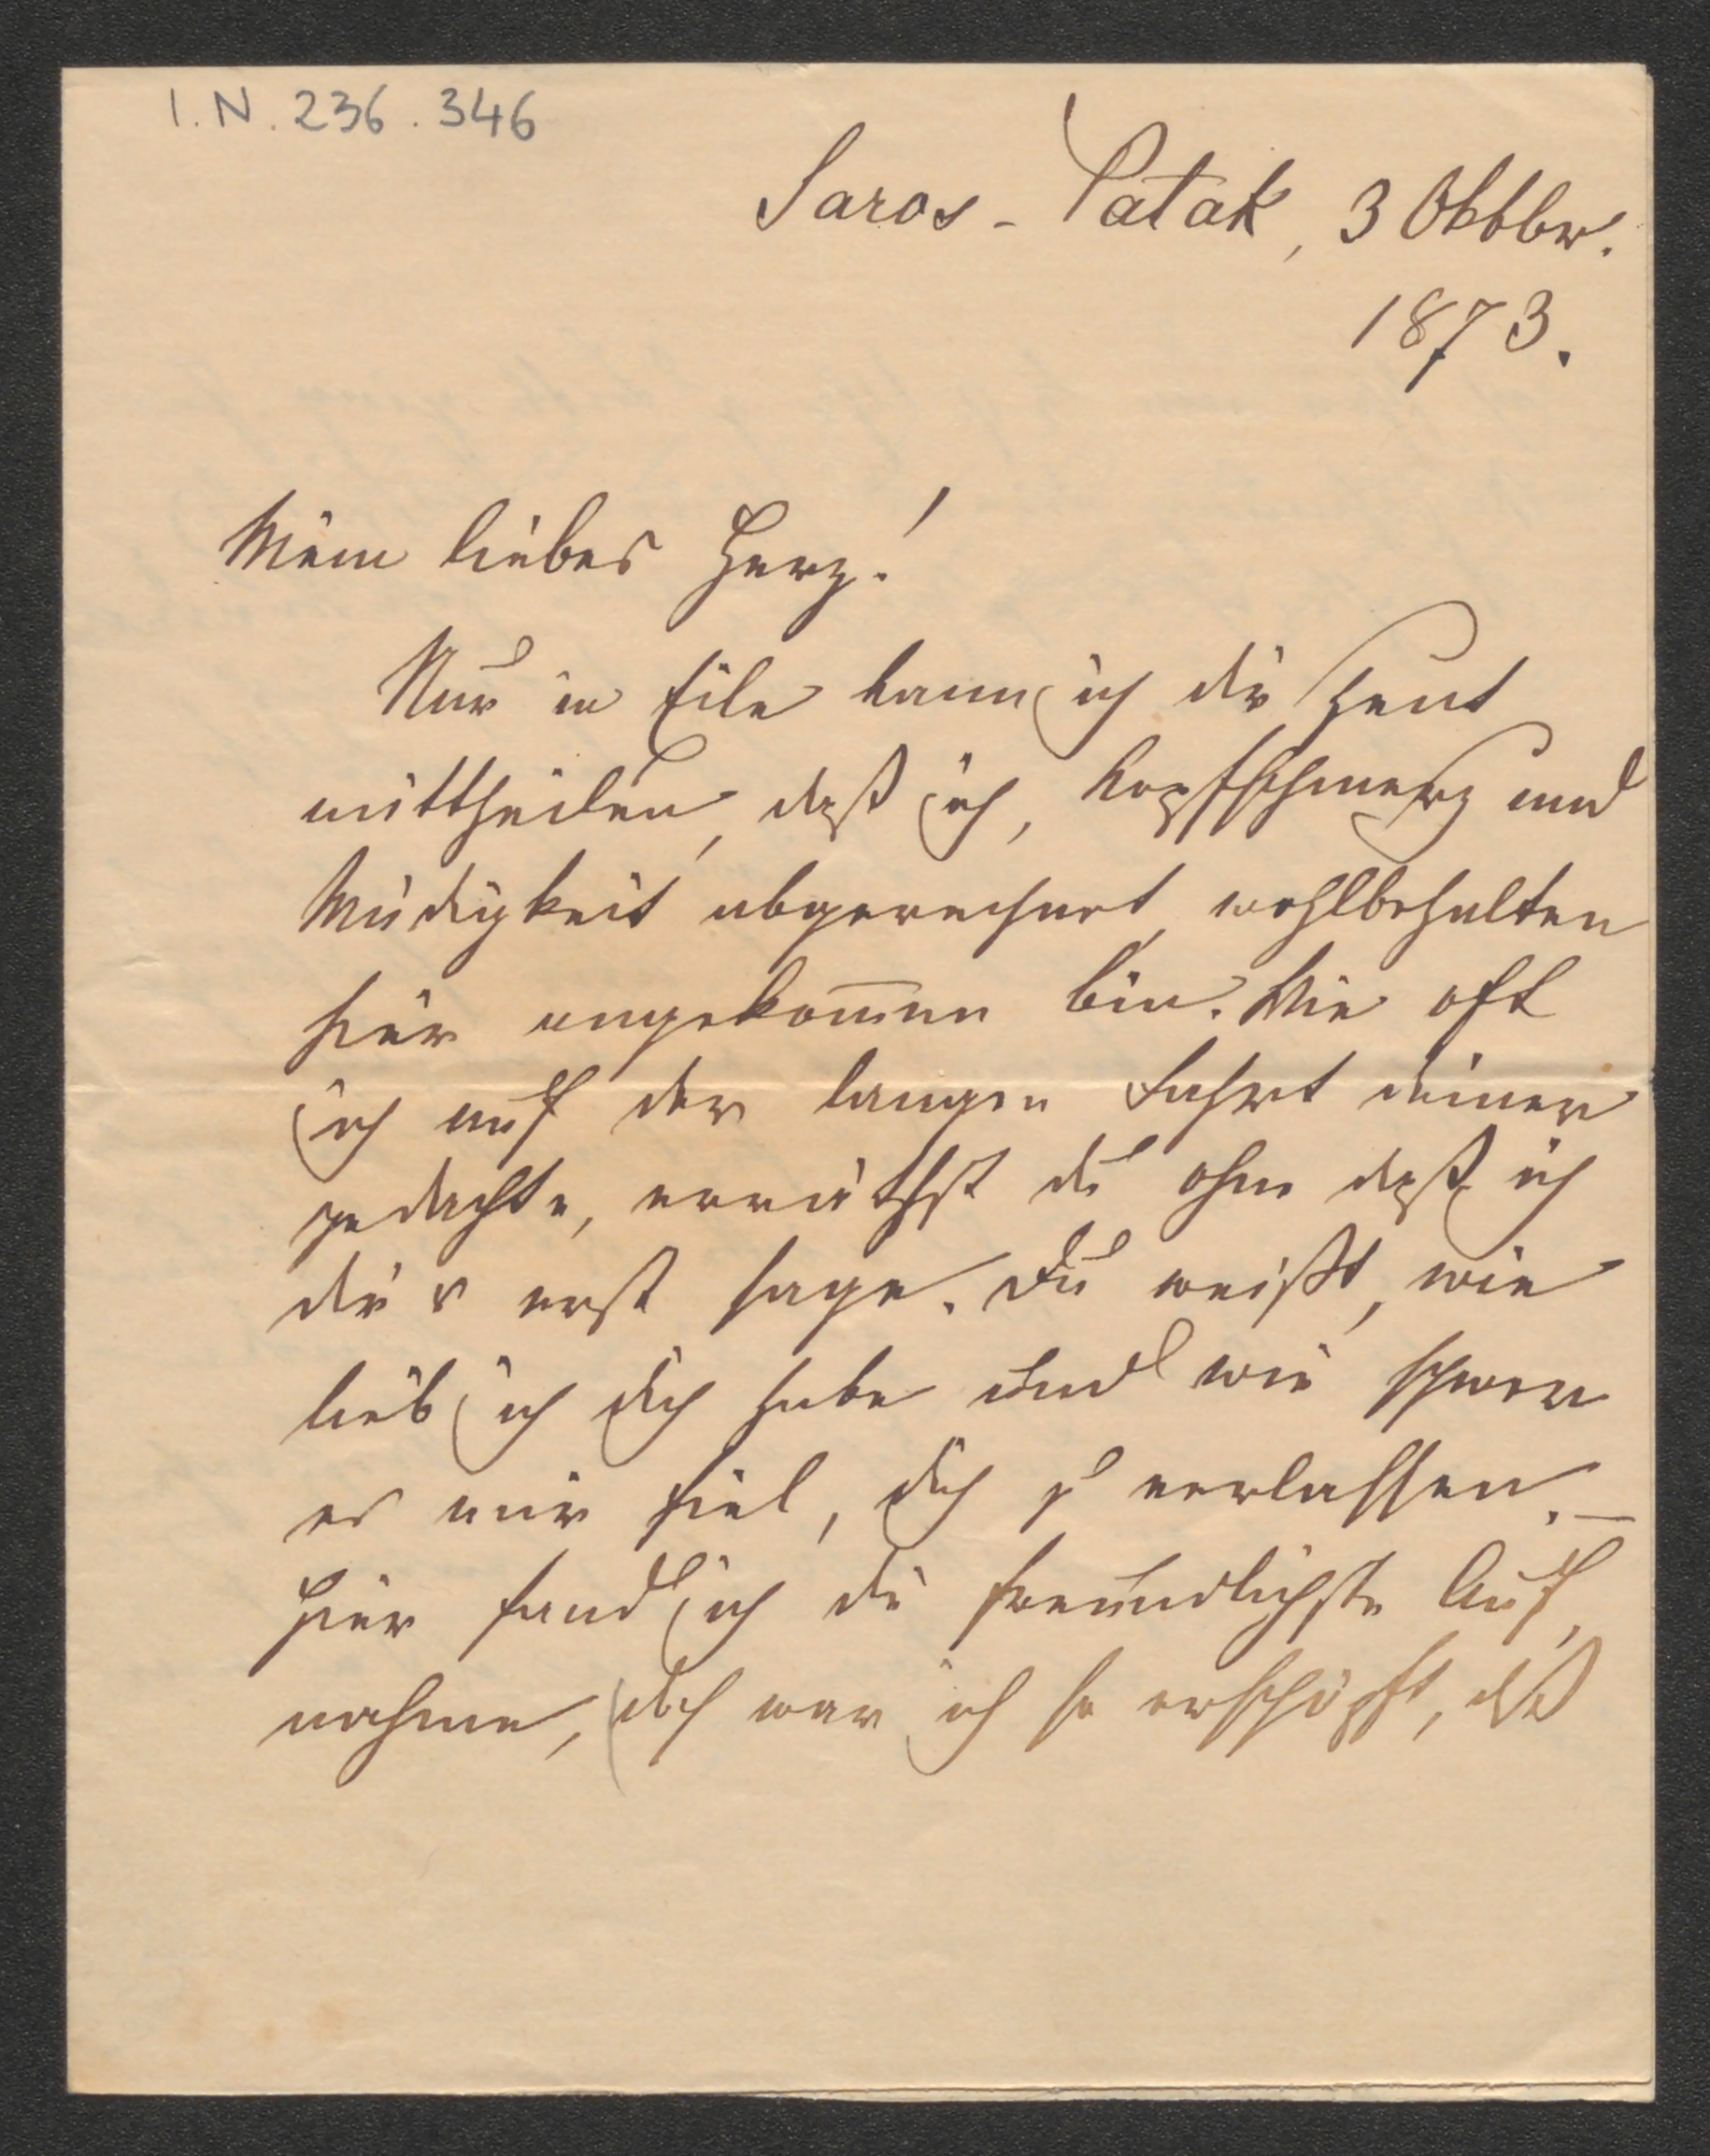 I.N. 236.346
Saros-Patak, 3 Oktbr.
1873.
Mein liebes Herz!
Nur in Eile kann ich dir heut
mittheilen, daß ich, Kopfschmerz und
Müdigkeit abgerechnet, wohlbehalten
hier angekom̅en bin. Wie oft
ich auf der langen Fahrt deiner
gedachte, erräthst du ohne daß ich
dir's erst sage. Du weißt, wie
lieb ich dich habe und wie schwer
es mir fiel, dich zu verlassen. —
Hier fand ich die freundlichste Auf,
nahme, doch war ich so erschöpft, daß